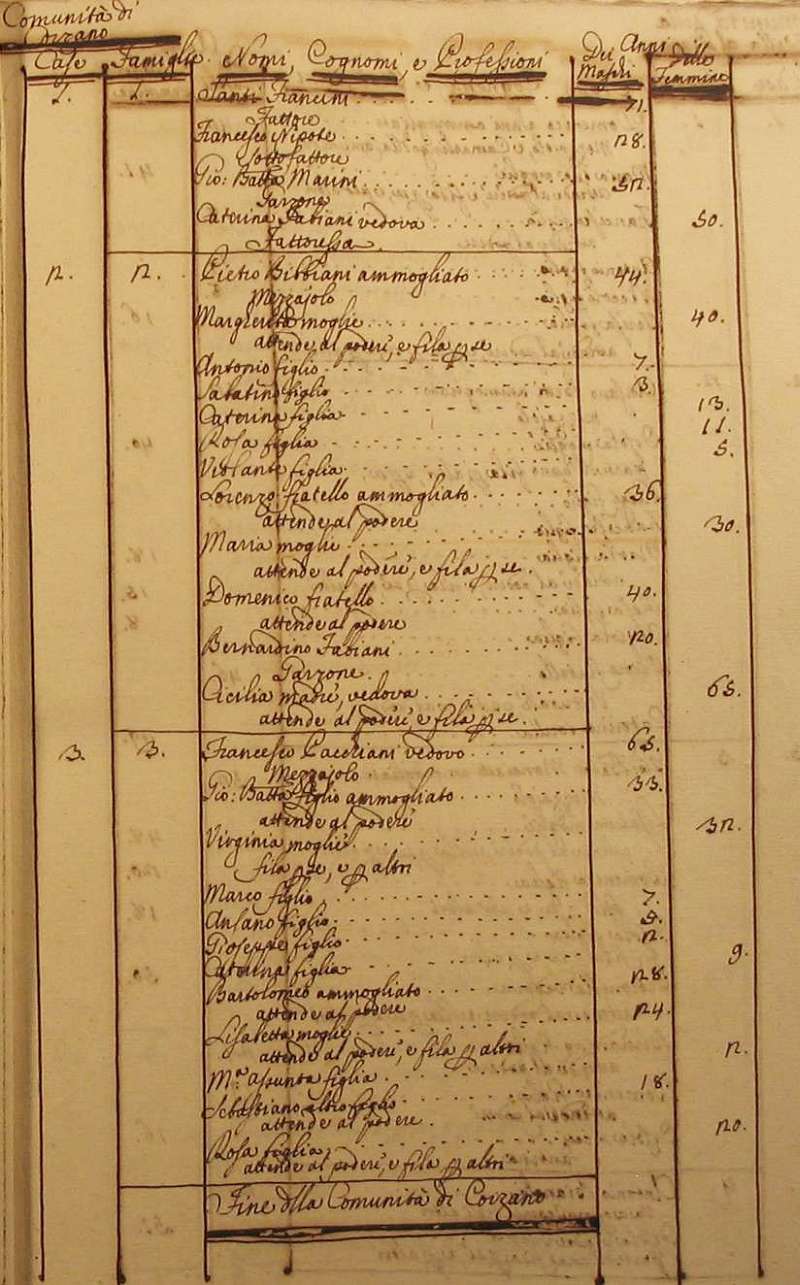 Comunità di
Corzano
Case Famiglie Nomi, Cognomi, e Professioni Dei Maschi Anni delle Femmine
1. 1. Santi Francini 71.
Fattore
Francesco Nipote 28.
Sottofattore
Gio: Batta Marini 32.
Garzone
Caterina Fabiani vedova 50.
Fattoressa.
2. 2. Pietro Bibbiani ammogliato 44.
Mezzajolo
Margherita moglie 40.
attende al podere, e fila p se
Antonio figlio 7.
Sabatino figlio 3.
Caterina figlia 13.
Rosa figlia 11.
Violante figlia 5.
Lorenzo fratello ammogliato 36.
attende al podere
Maria moglie 30.
attende al podere, e fila p se.
Domenico fratello 40.
attende al podere
Bernardino Fabiani 20.
Garzone.
Cicilia madre, vedova 65.
attende al podere, e fila p se.
3. 3. Francesco Pacciani vedovo 65.
Mezzajolo
Gio: Batta figlio ammogliato 33.
attende al podere
Virginia moglie 32.
fila p se, e p altri
Marco figlio 7.
Ansano figlio 5.
Gioseppe figlio 2.
Caterina figlia 9.
Bartolomeo ammogliato 28.
attende al podere
Lisabetta moglie 24.
attende al podere, e fila p altri
M.ª Assunta figlia 2.
Sebastiano altro figlio 18.
attende al podere.
Rosa figlia 20.
attende al podere, e fila p altri
Fine dlla Comunità di Corzano